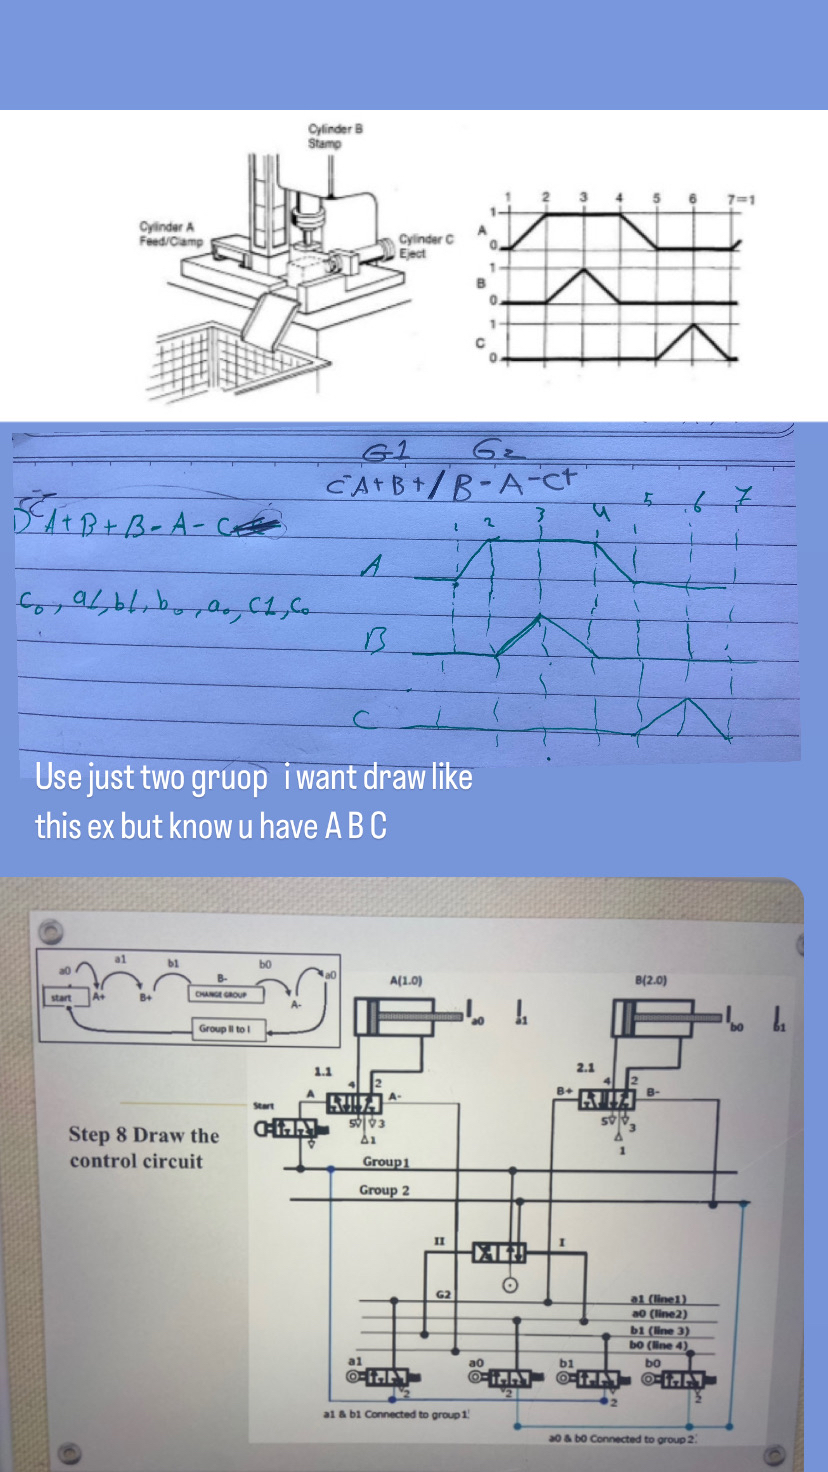 Cylinder B
Stamp
Cylinder A
Feed/Clamp
Cylinder C
Eject
1 2 3 4 5 6 7=1
1
A
0
1
B
0
1
C
0
G1 G2
C-A+B+/B-A-C+
A+B+B-A-C
1 2 3 4 5 6 7
A
c0, a1, b1, b0, a0, C1, C0
B
C
Use just two gruop i want draw like
this ex but know u have A B C
a0 a1 b1 B- b0 a0
start A+ B+ CHANGE GROUP A-
Group II to I
A(1.0) B(2.0)
a0 a1 b0 b1
1.1 2.1
4 2 4 2
Start A A- B+ B-
5 3 5 3
1 1
Step 8 Draw the
control circuit
Group1
Group 2
II I
G2
a1 (line1)
a0 (line2)
b1 (line 3)
b0 (line 4)
a1 a0 b1 b0
2 2 2 2
a1 & b1 Connected to group1
a0 & b0 Connected to group2